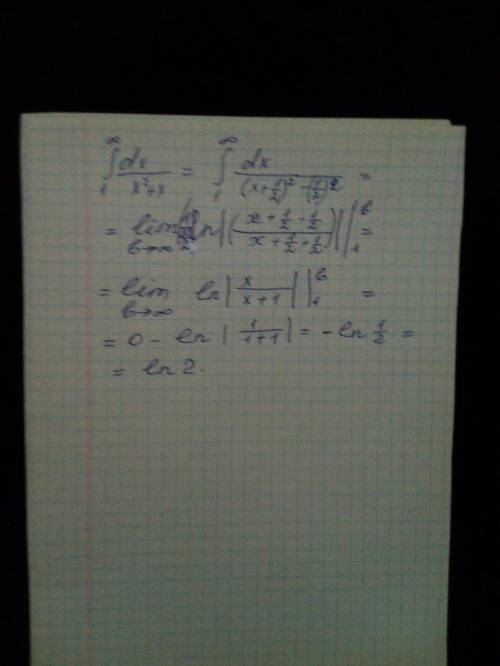 ∫₁^∞ dx/(x²+x) = ∫₁^∞ dx/((x+1/2)²-(1/2)²) =
= lim b→∞ ln|(x+1/2-1/2)/(x+1/2+1/2)| |₁^b =
= lim b→∞ ln|x/(x+1)| |₁^b =
= 0 - ln|1/(1+1)| = -ln 1/2 =
= ln 2.